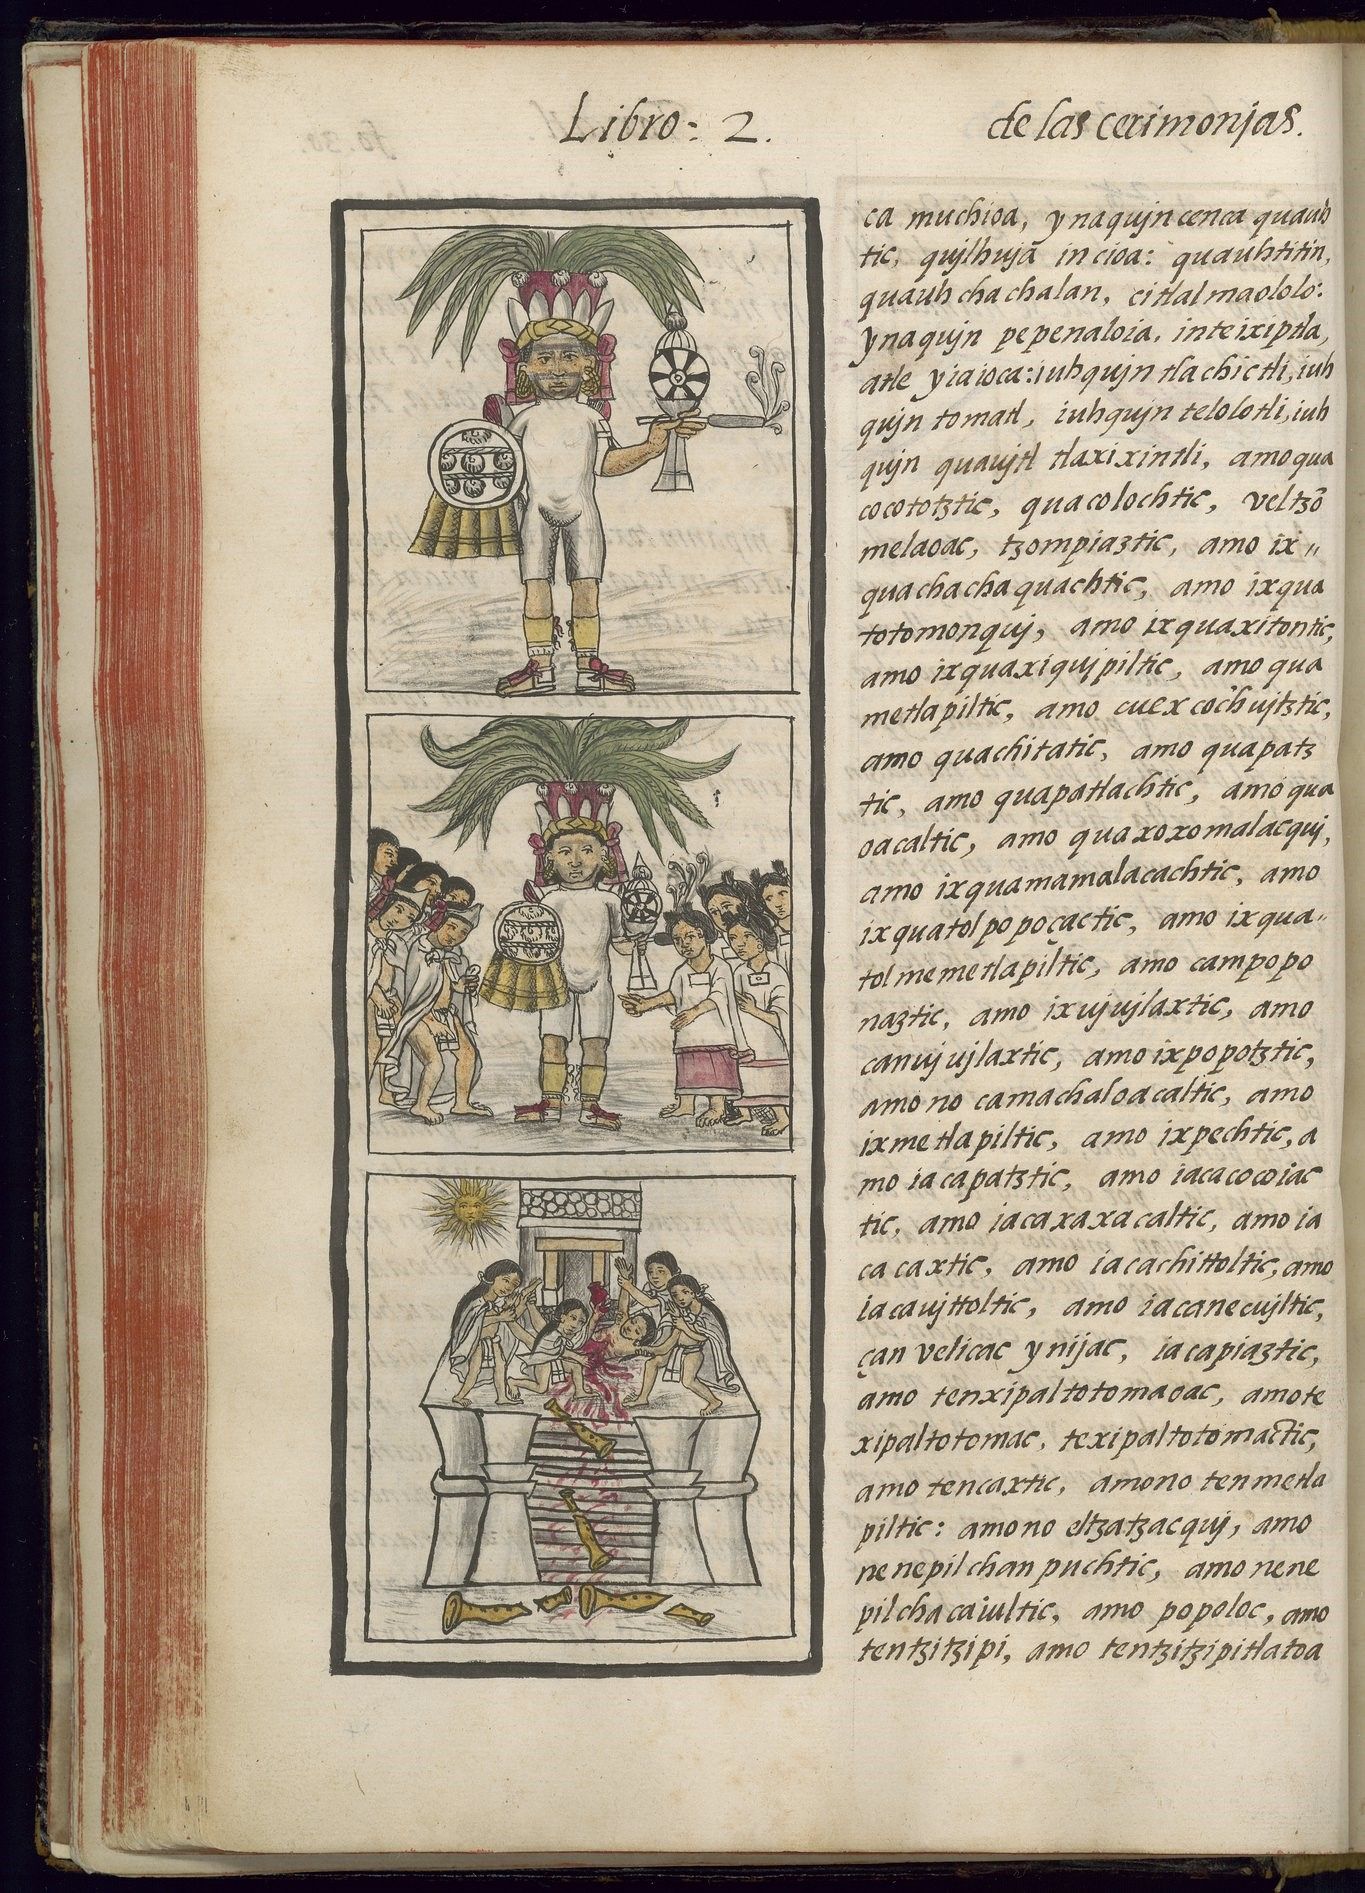 Libro: 2.
de las cerimonjas.
ca muchioa, ynaqujn cenca quauh
tic, qujlhujā in cioa: quauhtitin,
quauh chachalan, citlalmaololo:
ynaqujn pepenaloia, inteixiptla,
atle yiaioca: iuhqujn tlachictli, iuh
qujn tomatl, iuhqujn telolotli, iuh
qujn quaujtl tlaxixintli, amo qua
cocototztic, quacolochtic, veltzō
melaoac, tzompiaztic, amo ix〃
quachachaquachtic, amo ixqua
totomonquj, amo ixquaxitontic,
amo ixquaxiqujpiltic, amo qua
metlapiltic, amo cuexcochujtztic,
amo quachitatic, amo quapatz
tic, amo quapatlachtic, amo qua
oacaltic, amo quaxoxomalacquj,
amo ixquamamalacachtic, amo
ixquatolpopoçactic, amo ixqua〃
tolmemetlapiltic, amo campopo
naztic, amo ixujujlaxtic, amo
canujujlaxtic, amo ixpopotztic,
amo no camachaloacaltic, amo
ixmetlapiltic, amo ixpechtic, a
mo iacapatztic, amo iacacocoiac
tic, amo iacaxaxacaltic, amo ia
cacaxtic, amo iacachittoltic, amo
iacaujttoltic, amo iacanecujltic,
çan velicac ynijac, iacapiaztic,
amo tenxipaltotomaoac, amo te
xipaltotomac, texipaltotomactic,
amo tencaxtic, amo no tenmetla
piltic: amo no eltzatzacquj, amo
nenepilchanpuchtic, amo nene
pilchacaiultic, amo popoloc, amo
tentzitzipi, amo tentzitzipitlatoa